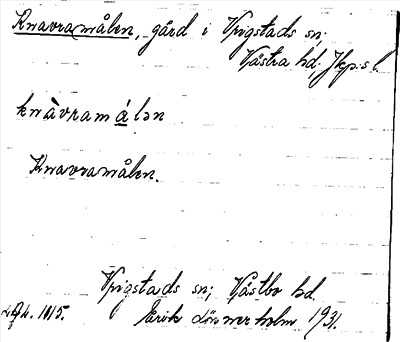 Knavramålen, gård i Vrigstads sn;
Västra hd. Jkp:s l.
knàvramálən
Knavramålen.
Vrigstads sn; Västbo hd.
Erik Lönnerholm 1931.